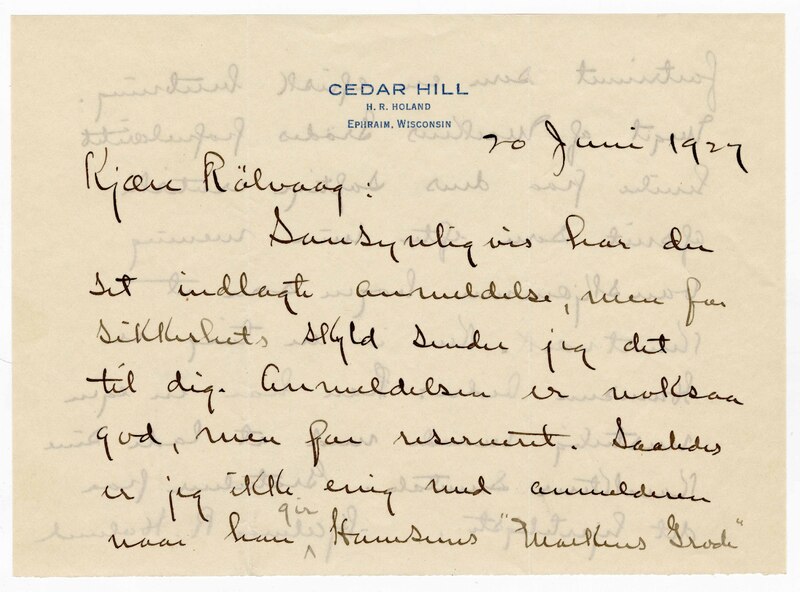 CEDAR HILL
H. R. HOLAND
EPHRAIM, WISCONSIN
20 Juni 1927
Kjære Rölvaag:
Sansynligvis har du
set indlagte anmeldelse, men for
sikkerhets skyld sender jeg det
til dig. Anmeldelsen er noksaa
god, men for reserveret. Saaledes
er jeg ikke enig med anmelderen
naar han gir Hamsuns "Markens Grøde"